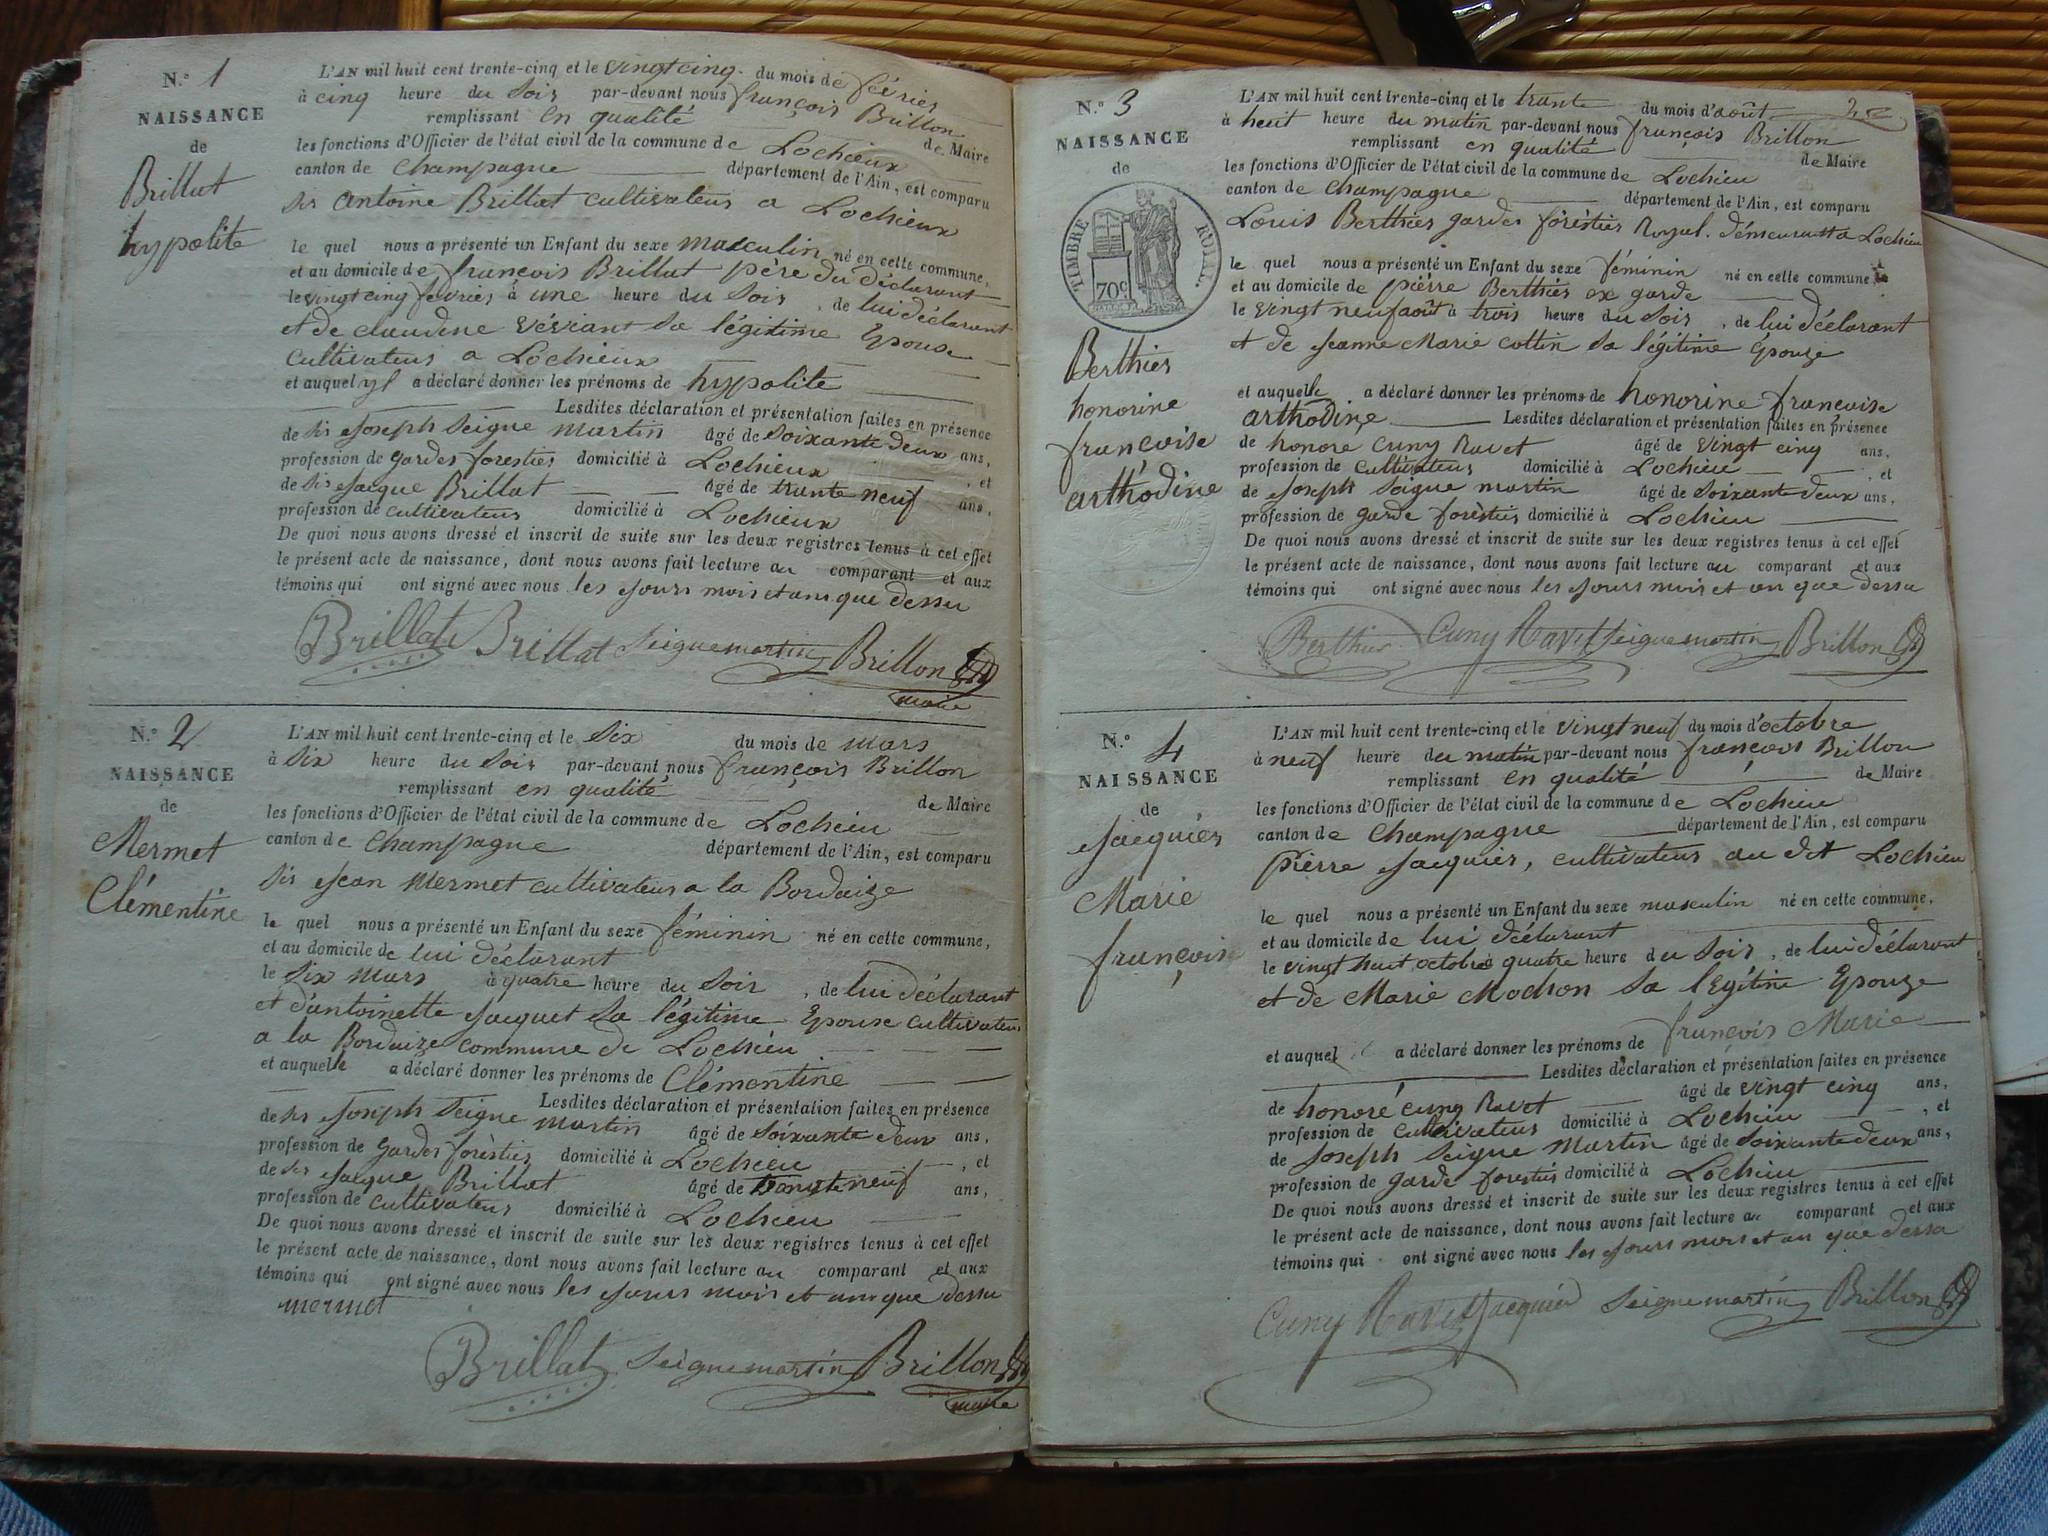 N.° 1
NAISSANCE
de
Brillat
hypolite
L'AN mil huit cent trente-cinq et le vingt cinq du mois de février
à cinq heure du soir par-devant nous françois Brillon
remplissant en qualité de Maire
les fonctions d'Officier de l'état civil de la commune de Lochieux
canton de Champagne département de l'Ain, est comparu
sir antoine Brillat cultivateur a Lochieux
le quel nous a présenté un Enfant du sexe masculin né en cette commune,
et au domicile de françois Brillat père du déclarant
le vingt cinq février à une heure du soir, de lui déclarant
et de claudine sa légitime Epouse
cultivateurs a Lochieux
et auquel yl a déclaré donner les prénoms de hypolite
Lesdites déclaration et présentation faites en présence
de sir Joseph Seigne martin âgé de soixante deux ans,
profession de gardes forestier domicilié à Lochieux, et
de sir Jacque Brillat âgé de trante neuf ans,
profession de cultivateur domicilié à Lochieux
De quoi nous avons dressé et inscrit de suite sur les deux registres tenus à cet effet
le présent acte de naissance, dont nous avons fait lecture au comparant et aux
témoins qui ont signé avec nous les jours mois et an que dessu
Brillat Brillat Seignemartin Brillon
maire
N.° 2
NAISSANCE
de
Mermet
Clémentine
L'AN mil huit cent trente-cinq et le six du mois de mars
à six heure du soir par-devant nous françois Brillon
remplissant en qualité de Maire
les fonctions d'Officier de l'état civil de la commune de Lochieu
canton de Champagne département de l'Ain, est comparu
sir Jean Mermet cultivateur a la Bordaize
le quel nous a présenté un Enfant du sexe féminin né en cette commune,
et au domicile de lui déclarant
le six mars à quatre heure du soir, de lui déclarant
et d'antoinette Jacquet sa légitime Epouse cultivateur
a la Bordaize commune de Lochieu
et auquelle a déclaré donner les prénoms de Clémentine
Lesdites déclaration et présentation faites en présence
de sir Joseph Seigne martin âgé de soixante deux ans,
profession de gardes forèstier domicilié à Lochieu, et
de sir Jacque Brillat âgé de trante neuf ans,
profession de cultivateur domicilié à Lochieu
De quoi nous avons dressé et inscrit de suite sur les deux registres tenus à cet effet
le présent acte de naissance, dont nous avons fait lecture au comparant et aux
témoins qui ont signé avec nous les jours mois et an que dessu
mermet
Brillat Seignemartin Brillon
maire
N.° 3
NAISSANCE
de
TIMBRE ROYAL
70c
Berthier
honorine
françoise
arthodine
L'AN mil huit cent trente-cinq et le trante du mois d'août
à heut heure du matin par-devant nous françois Brillon
remplissant en qualité de Maire
les fonctions d'Officier de l'état civil de la commune de Lochieu
canton de Champagne département de l'Ain, est comparu
Louis Berthier gardes forèstier Royal. démeurant a Lochieu
le quel nous a présenté un Enfant du sexe féminin né en cette commune,
et au domicile de pièrre Berthier ex garde
le vingt neuf août à trois heure du soir, de lui déclarant
et de Jeanne Marie cottin sa légitime Epouze
et auquelle a déclaré donner les prénoms de honorine françoise
arthodine Lesdites déclaration et présentation faites en présence
de honore Cuny Ravet âgé de vingt cinq ans,
profession de cultivateur domicilié à Lochieu, et
de Joseph Seigne martin âgé de soixante deux ans,
profession de garde forèstier domicilié à Lochieu
De quoi nous avons dressé et inscrit de suite sur les deux registres tenus à cet effet
le présent acte de naissance, dont nous avons fait lecture au comparant et aux
témoins qui ont signé avec nous les jours mois et an que dessu
Berthier Cuny Ravet Seignemartin Brillon
N.° 4
NAISSANCE
de
Jacquier
Marie
françois
L'AN mil huit cent trente-cinq et le vingt neuf du mois d'octobre
à neuf heure du matin par-devant nous françois Brillon
remplissant en qualité de Maire
les fonctions d'Officier de l'état civil de la commune de Lochieu
canton de Champagne département de l'Ain, est comparu
pièrre Jacquier, cultivateur au dit Lochieu
le quel nous a présenté un Enfant du sexe masculin né en cette commune,
et au domicile de lui déclarant
le vingt huit octobre à quatre heure du soir, de lui déclarant
et de Marie Mochon sa légitime Epouze
et auquel a déclaré donner les prénoms de françois Marie
Lesdites déclaration et présentation faites en présence
de honoré cuny Ravet âgé de vingt cinq ans,
profession de cultivateur domicilié à Lochieu, et
de Joseph Seigne Martin âgé de soixante deux ans,
profession de garde forestier domicilié à Lochieu
De quoi nous avons dressé et inscrit de suite sur les deux registres tenus à cet effet
le présent acte de naissance, dont nous avons fait lecture au comparant et aux
témoins qui ont signé avec nous les jours mois et an que dessu
Cuny Ravet Jacquier Seignemartin Brillon